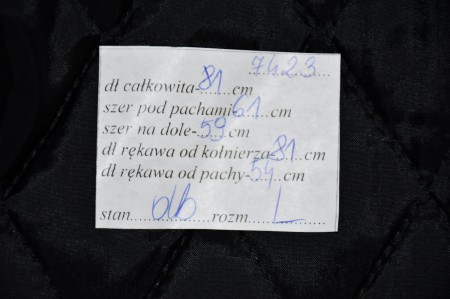 7423
dł całkowita-81 cm
szer pod pachami-61 cm
szer na dole-59 cm
dł rękawa od kołnierza-81 cm
dł rękawa od pachy-54 cm
stan db rozm L